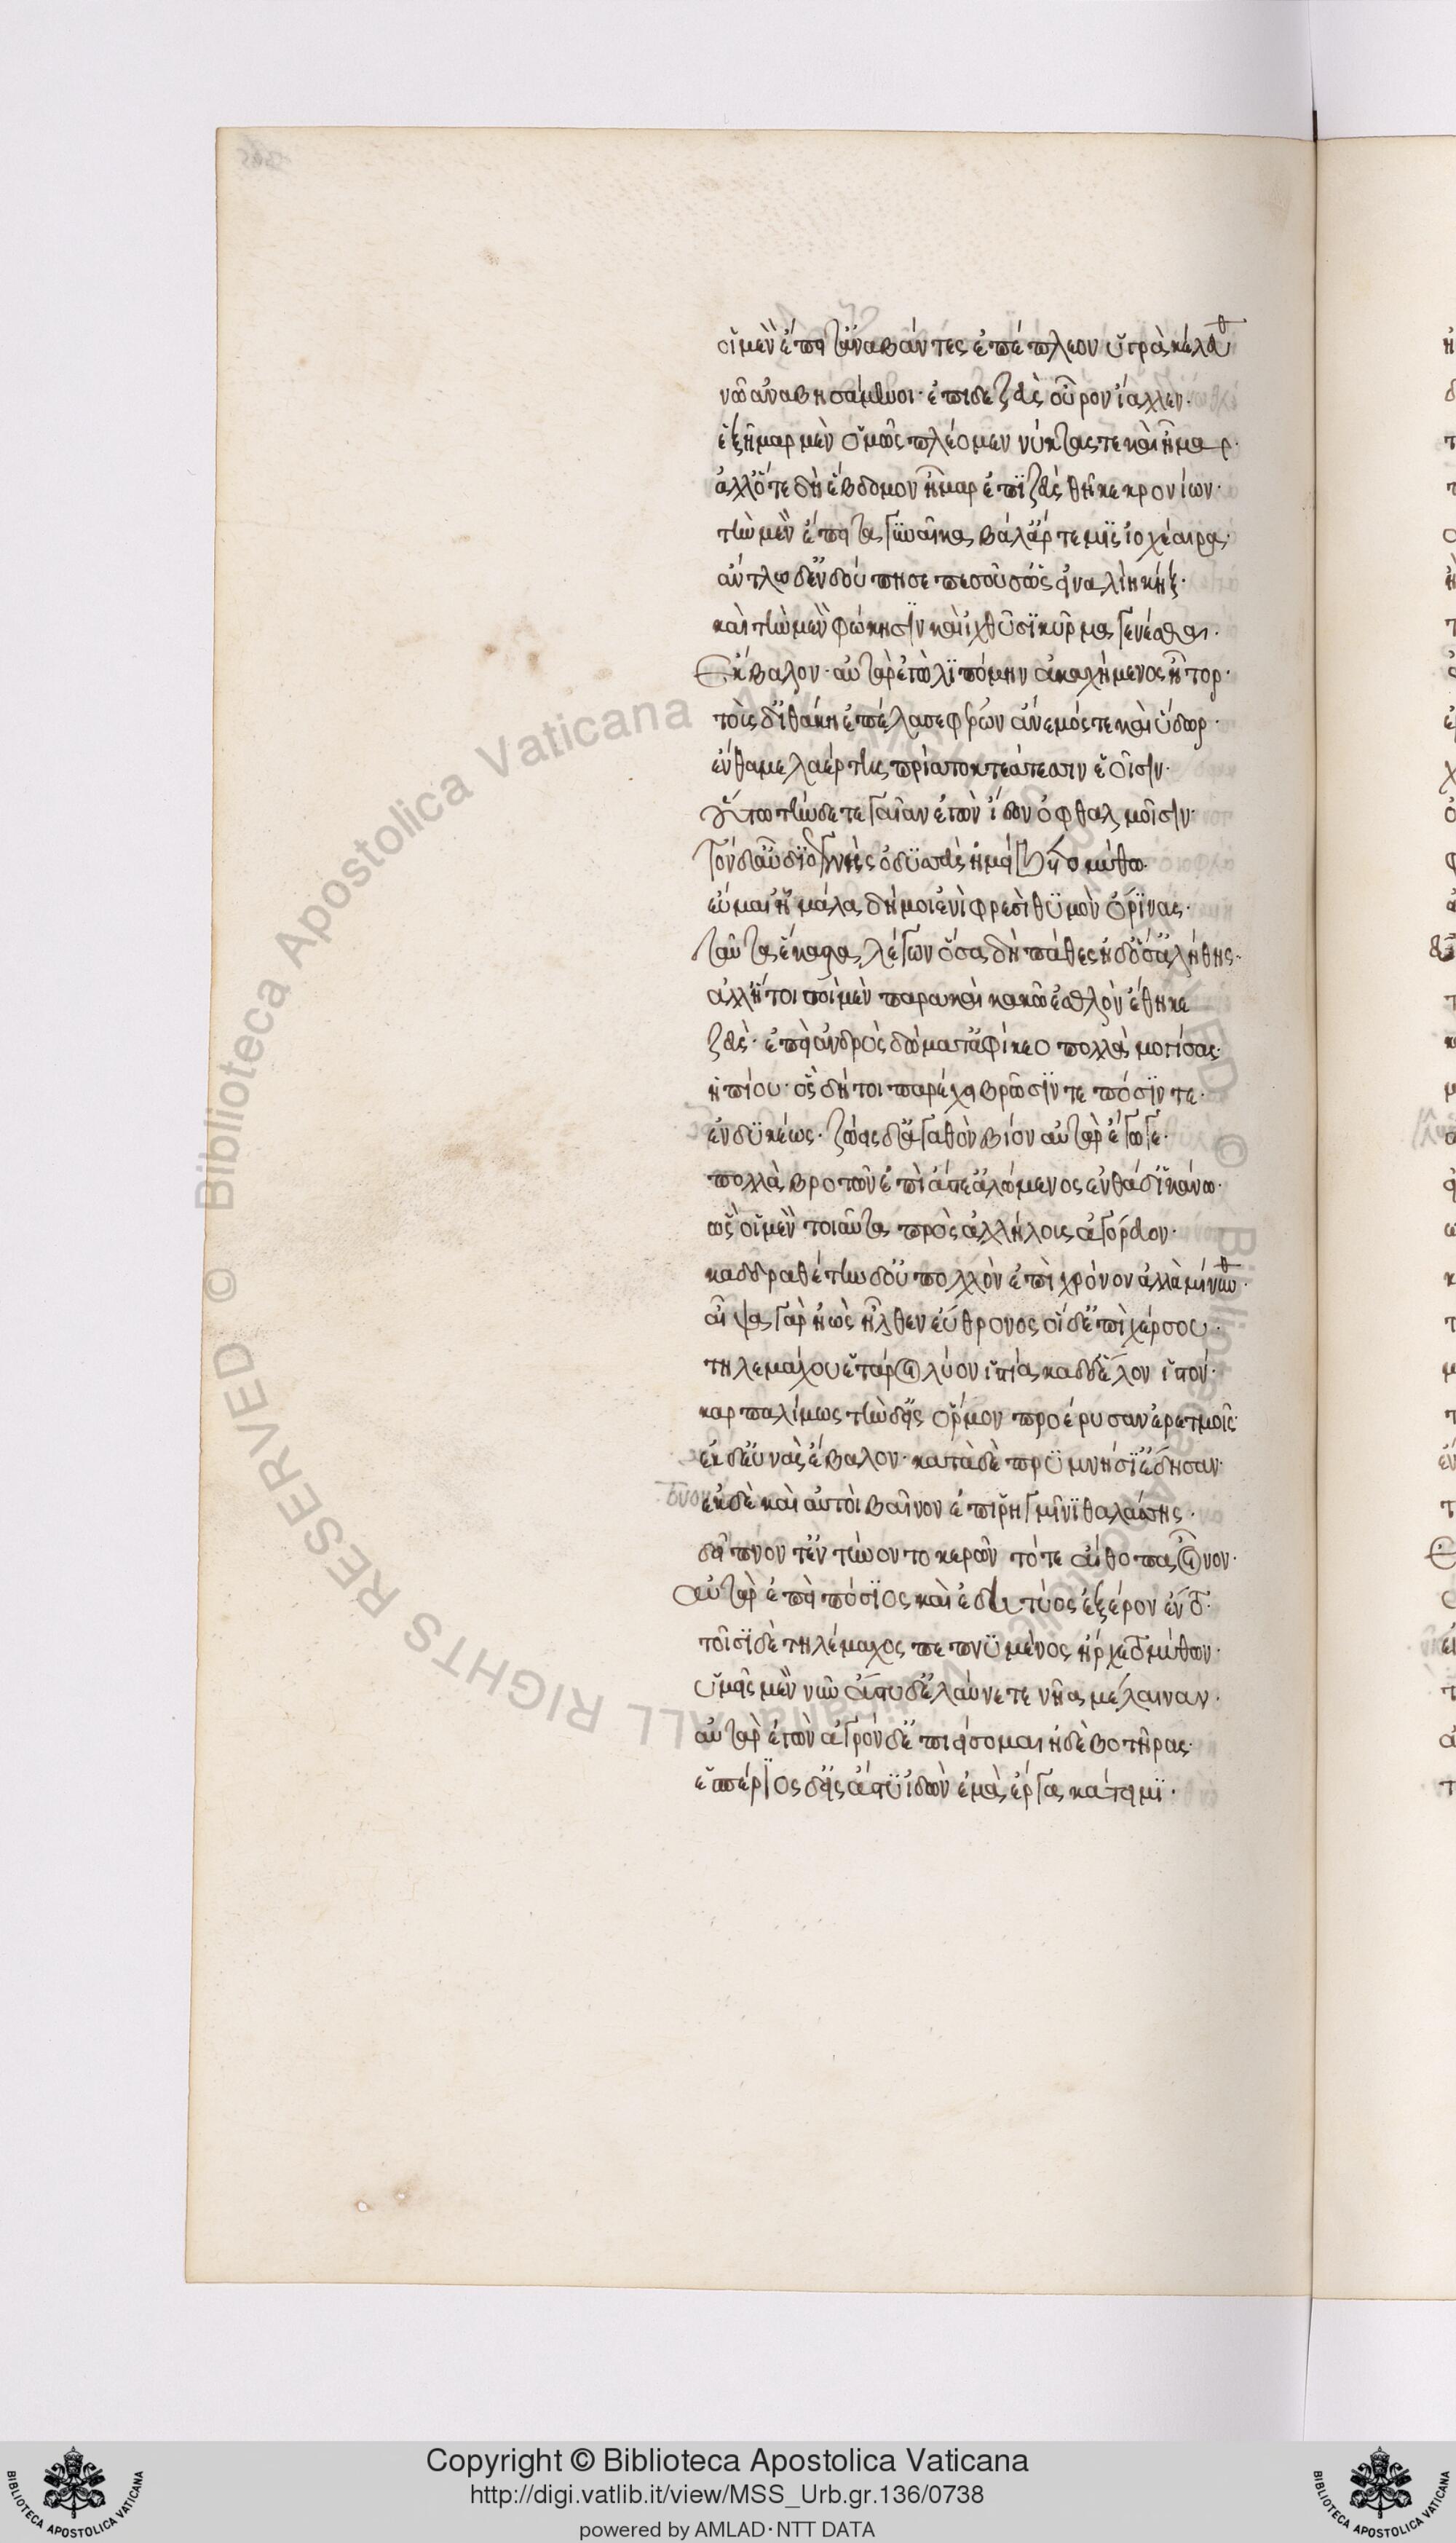 οἱ μὲν ἔπειτ' ἀναβάντες ἐπέπλεον ὑγρὰ κέλευθ
νῶ ἀναβησάμενοι· ἐπὶ δὲ ζεὺς οὖρον ἴαλλεν·
ἑξῆμαρ μὲν ὁμῶς πλέομεν νύκτας τε καὶ ἦμαρ·
ἀλλ' ὅτε δὴ ἕβδομον ἦμαρ ἐπὶ ζεὺς θῆκε κρονίων·
τὴν μὲν ἔπειτα γυναῖκα βάλ' ἄρτεμις ἰοχέαιρα·
ἄντλω δ' ἐνδούπησε πεσοῦσ' ὡς εἰναλίη κήξ·
καὶ τὴν μὲν φώκησιν καὶ ἰχθύσι κύρμα γενέσθαι·
ἔκβαλον· αὐτὰρ ἐγὼ λιπόμην ἀκαχήμενος ἦτορ·
τοὺς δ' ἰθάκη ἐπέλασε φέρων ἄνεμός τε καὶ ὕδωρ·
ἔνθα με λαέρτης πρίατο κτεάτεσσιν ἑοῖσιν·
οὕτω τήνδε τε γαῖαν ἐγὼν ἴδον ὀφθαλμοῖσιν·
τὸν δ' αὖ διογενὴς ὀδυσσεὺς ἠμείβετο μύθω·
εὔμαι' ἦ μάλα δή μοι ἐνὶ φρεσὶ θυμὸν ὄρινας·
ταῦτα ἕκαστα λέγων ὅσα δὴ πάθες ἠδ' ὅσ' ἀλήθης·
ἀλλ' ἤτοι σοὶ μὲν παρα καὶ κακῶ ἐσθλὸν ἔθηκε
ζεύς· ἐπεὶ ἀνδρὸς δώματ' ἀφίκεο πολλὰ μογήσας·
ἠπίου· ὃς δή τοι παρέχει βρῶσίν τε πόσιν τε·
ἐνδυκέως· ζώεις δ' ἀγαθὸν βίον αὐτὰρ ἔγωγε·
πολλὰ βροτῶν ἐπὶ ἄστε' ἀλώμενος ἐνθάδ' ἱκάνω·
ὣς οἱ μὲν τοιαῦτα πρὸς ἀλλήλους ἀγόρευον·
καδδραθέτην δ' οὐ πολλὸν ἐπὶ χρόνον ἀλλὰ μίνυνθ·
αἶψα γὰρ ἠὼς ἦλθεν ἐΰθρονος οἱ δ' ἐπὶ χέρσου·
τηλεμάχου ἕταροι λύον ἱστία καδδ' ἕλον ἱστόν·
καρπαλίμως τὴν δ' εἰς ὅρμον προέρυσαν ἐρετμοῖς·
ἐκ δ' εὐνὰς ἔβαλον· κατὰ δὲ πρυμνήσι' ἔδησαν·
ἐκ δὲ καὶ αὐτοὶ βαῖνον ἐπὶ ῥηγμῖνι θαλάσσης·
δεῖπνον τ' ἐντύνοντο κερῶν τότε αἴθοπα οἶνον·
αὐτὰρ ἐπεὶ πόσιος καὶ ἐδητύος ἐξ ἔρον ἕντο·
τοῖσι δὲ τηλέμαχος πεπνυμένος ἤρχετο μύθων·
ὑμεῖς μὲν νῦν ἄστυδ' ἐλαύνετε νῆα μέλαιναν·
αὐτὰρ ἐγὼν ἀγρὸν δ' ἐπιείσομαι ἠδὲ βοτῆρας·
ἑσπέριος δ' εἰς ἄστυ ἰδὼν ἐμὰ ἔργα κάτειμι·
Copyright © Biblioteca Apostolica Vaticana
http://digi.vatlib.it/view/MSS_Urb.gr.136/0738
powered by AMLAD·NTT DATA